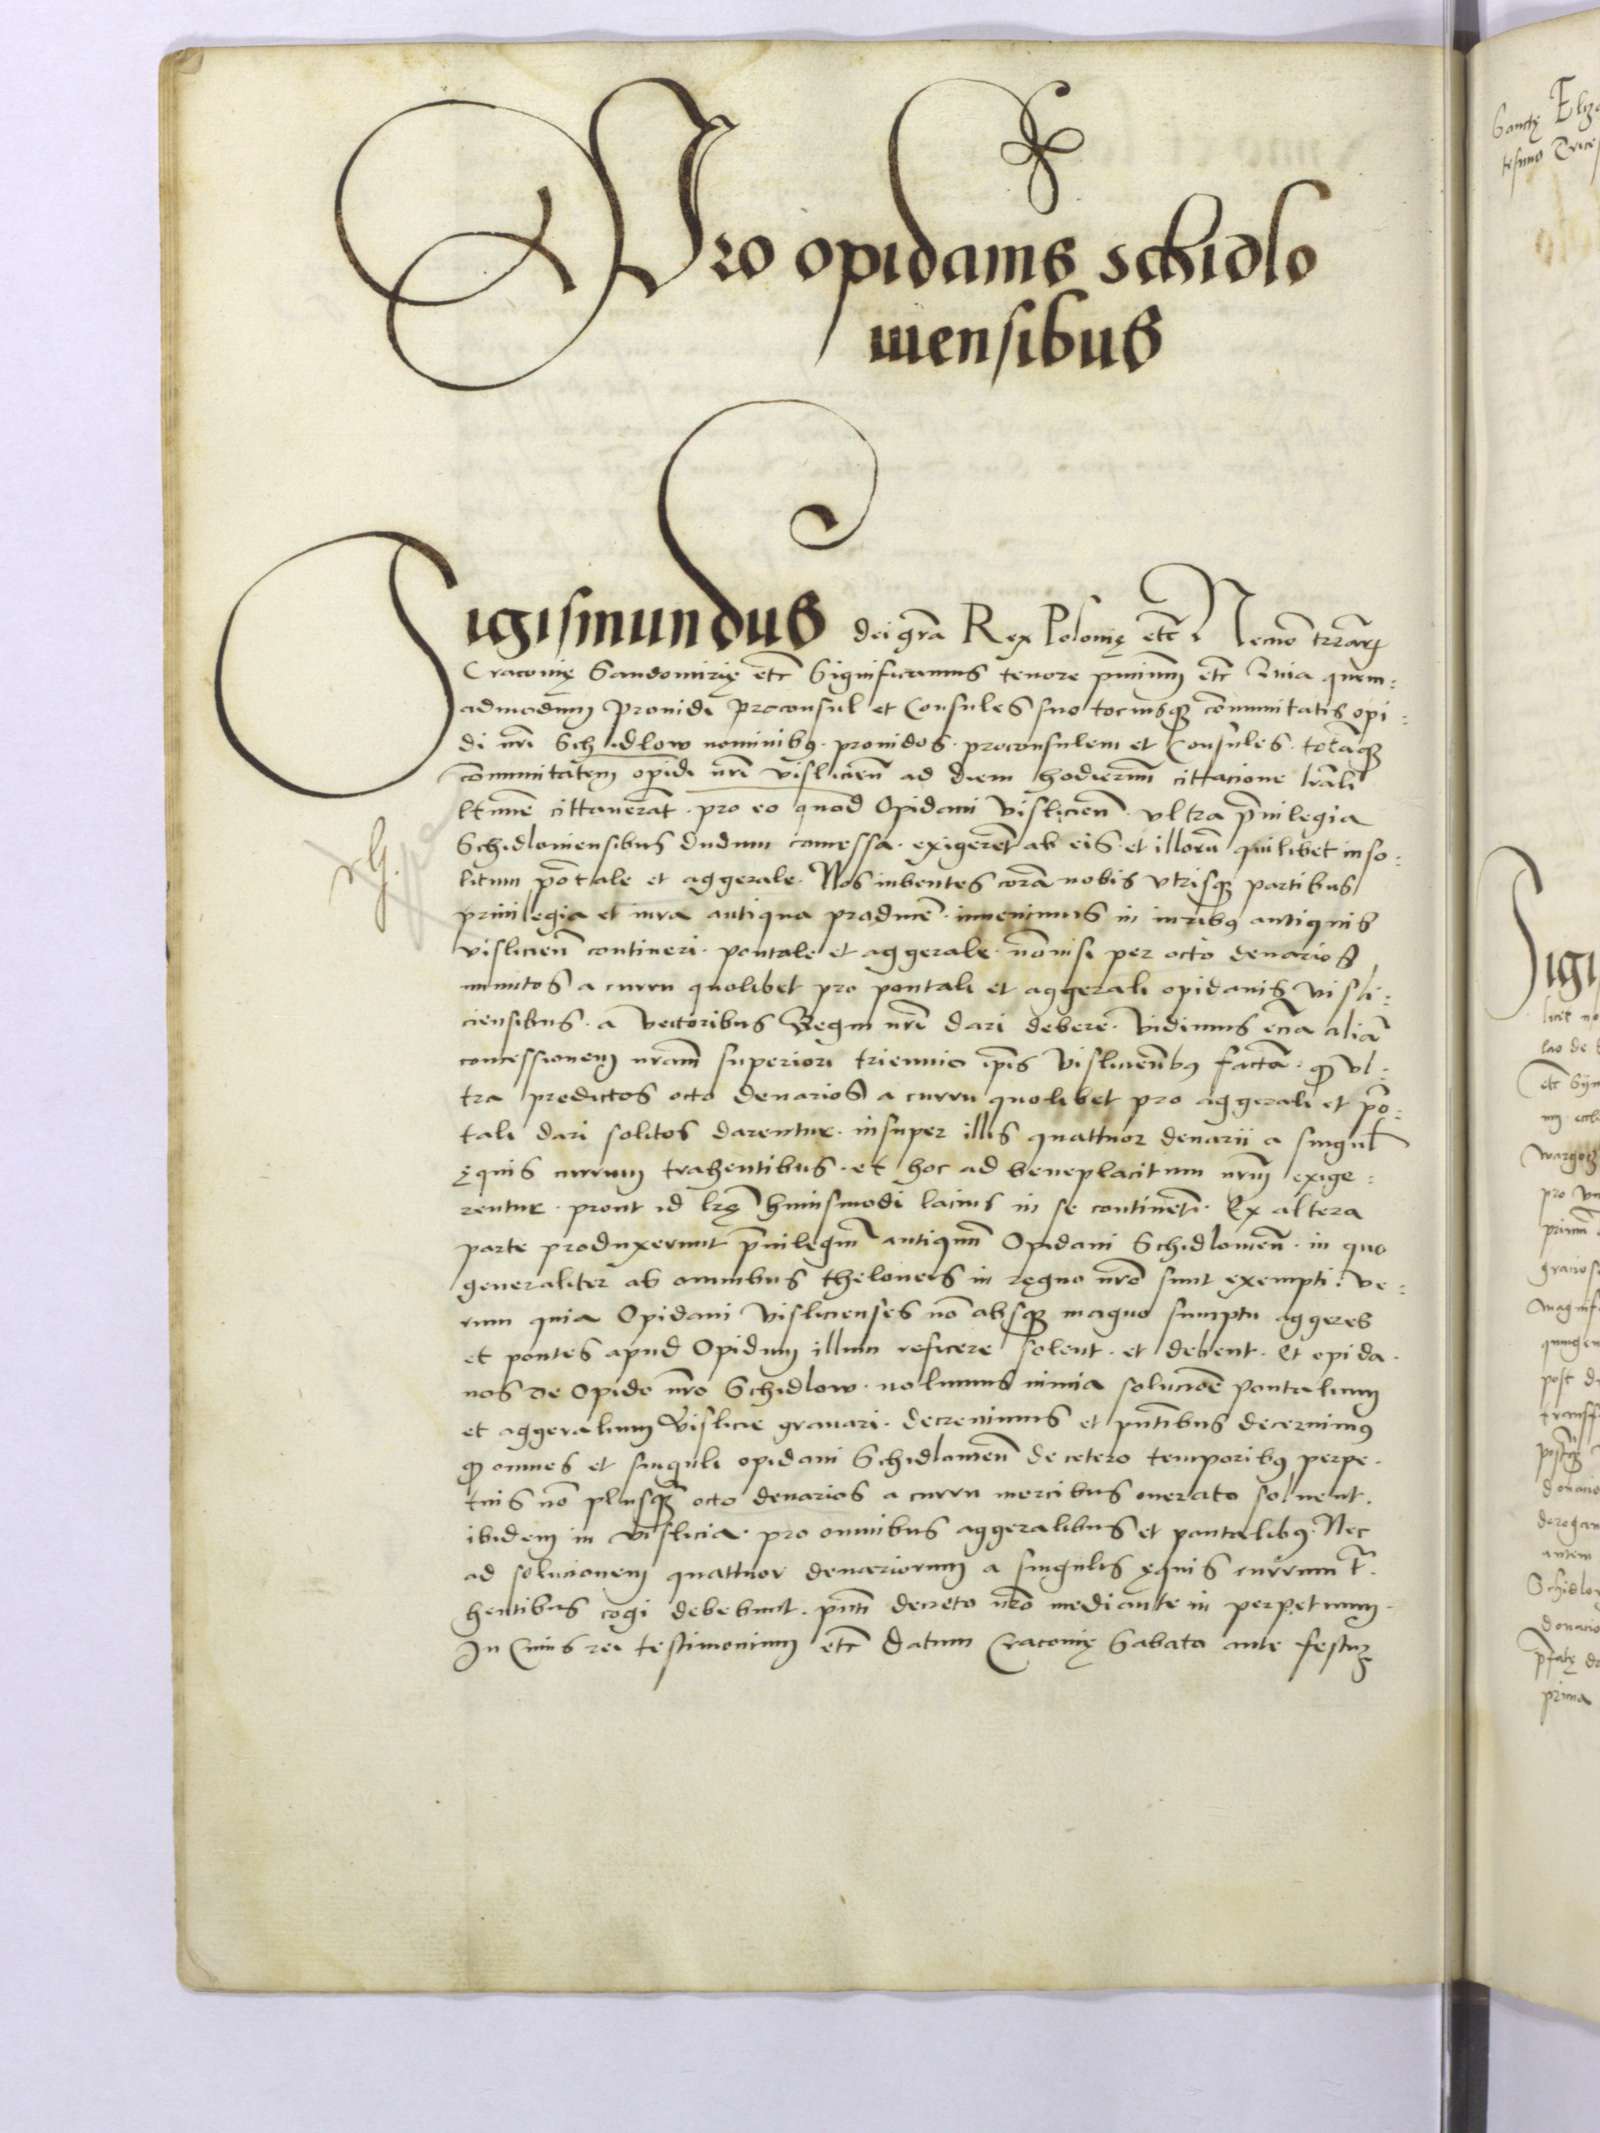 Pro opidanis schidlo
wensibus
Sigismundus dei gra͞ Rex Polonię etc͞ Necno͞ trra͞rꝫ
Cracovię Sandomirię etc͞ Significamus tenore pn͞tium etc͞ Quia quem-
admodum providi proconsul et Consules suo tociusqꝫ co͞munitatis opi-
di nr͞i Schidlow nominibꝰ providos proconsulem et Consules tota͞qꝫ
co͞munitatem opidi nr͞i vislicien͞ ad diem hodiernu͞ cittacione lr͞ali
lt͞ime͞ cittavera͞t pro eo quod Opidani vislicien͞ ultra p͞vilegia
Schidloviensibus dudum concessa exigere͞t ab eis et illoru͞ quilibet inso-
litum po͞tale et aggerale. Nos iubentes cora͞ nobis utrisqꝫ partibus
privilegia et iura antiqua producere͞ invenimus in iuribꝰ antiquis
vislicien͞ contineri pontale et aggerale no͞nisi per octo denarios
minutos a curru quolibet pro pontali et aggerali opidanis visli-
ciensibus a vectoribus Regni nr͞i dari debere. Vidimus ecia͞ alia͞
concessionem nr͞am superiori triennio ip͞is vislicien͞bꝰ facta͞ qꝫ ul-
tra predictos octo denarios a curru quolibet pro aggerali et po͞-
tali dari solitos darentur insuper illis quattuor denarii a singul͞
ęquis currum trahentibus et hoc ad beneplacitum nr͞m exige-
rentur prout id lr͞ę huiusmodi lacius in se contine͞t. Ex altera
parte produxerunt p͞vilegiu͞ antiquu͞ Opidani Schidlowien͞ in quo
generaliter ab omnibus theloneis in regno nr͞o sunt exempti. Ve-
rum quia Opidani vislicienses no͞ absqꝫ magno sumptu aggeres
et pontes apud Opidum illum reficere solent et debent. Et opida-
nos de Opido nr͞o Schidlow nolumus nimia soluc͞io͞e pontalium
et aggeralium Vislicie gravari decrevimus et pn͞tibus decernimꝰ
qꝫ omnes et singuli opidani Schidlowien͞ de cetero temporibꝰ perpe-
tuis no͞ plusqꝫ octo denarios a curru mercibus onerato solvent
ibidem in vislicia pro omnibus aggeralibus et pontalibꝰ. Nec
ad solucionem quattuor denariorum a singulis ęquis currum t͞-
hentibus cogi debebunt pn͞ti decreto nr͞o mediante in perpetuum.
In Cuius rei testimonium etc͞ datum Cracovię Sabato ante festuꝫ
Sanctę Eliza
tesimo Trice
Sigi
lao de
etc͞ Sig
pro
prima